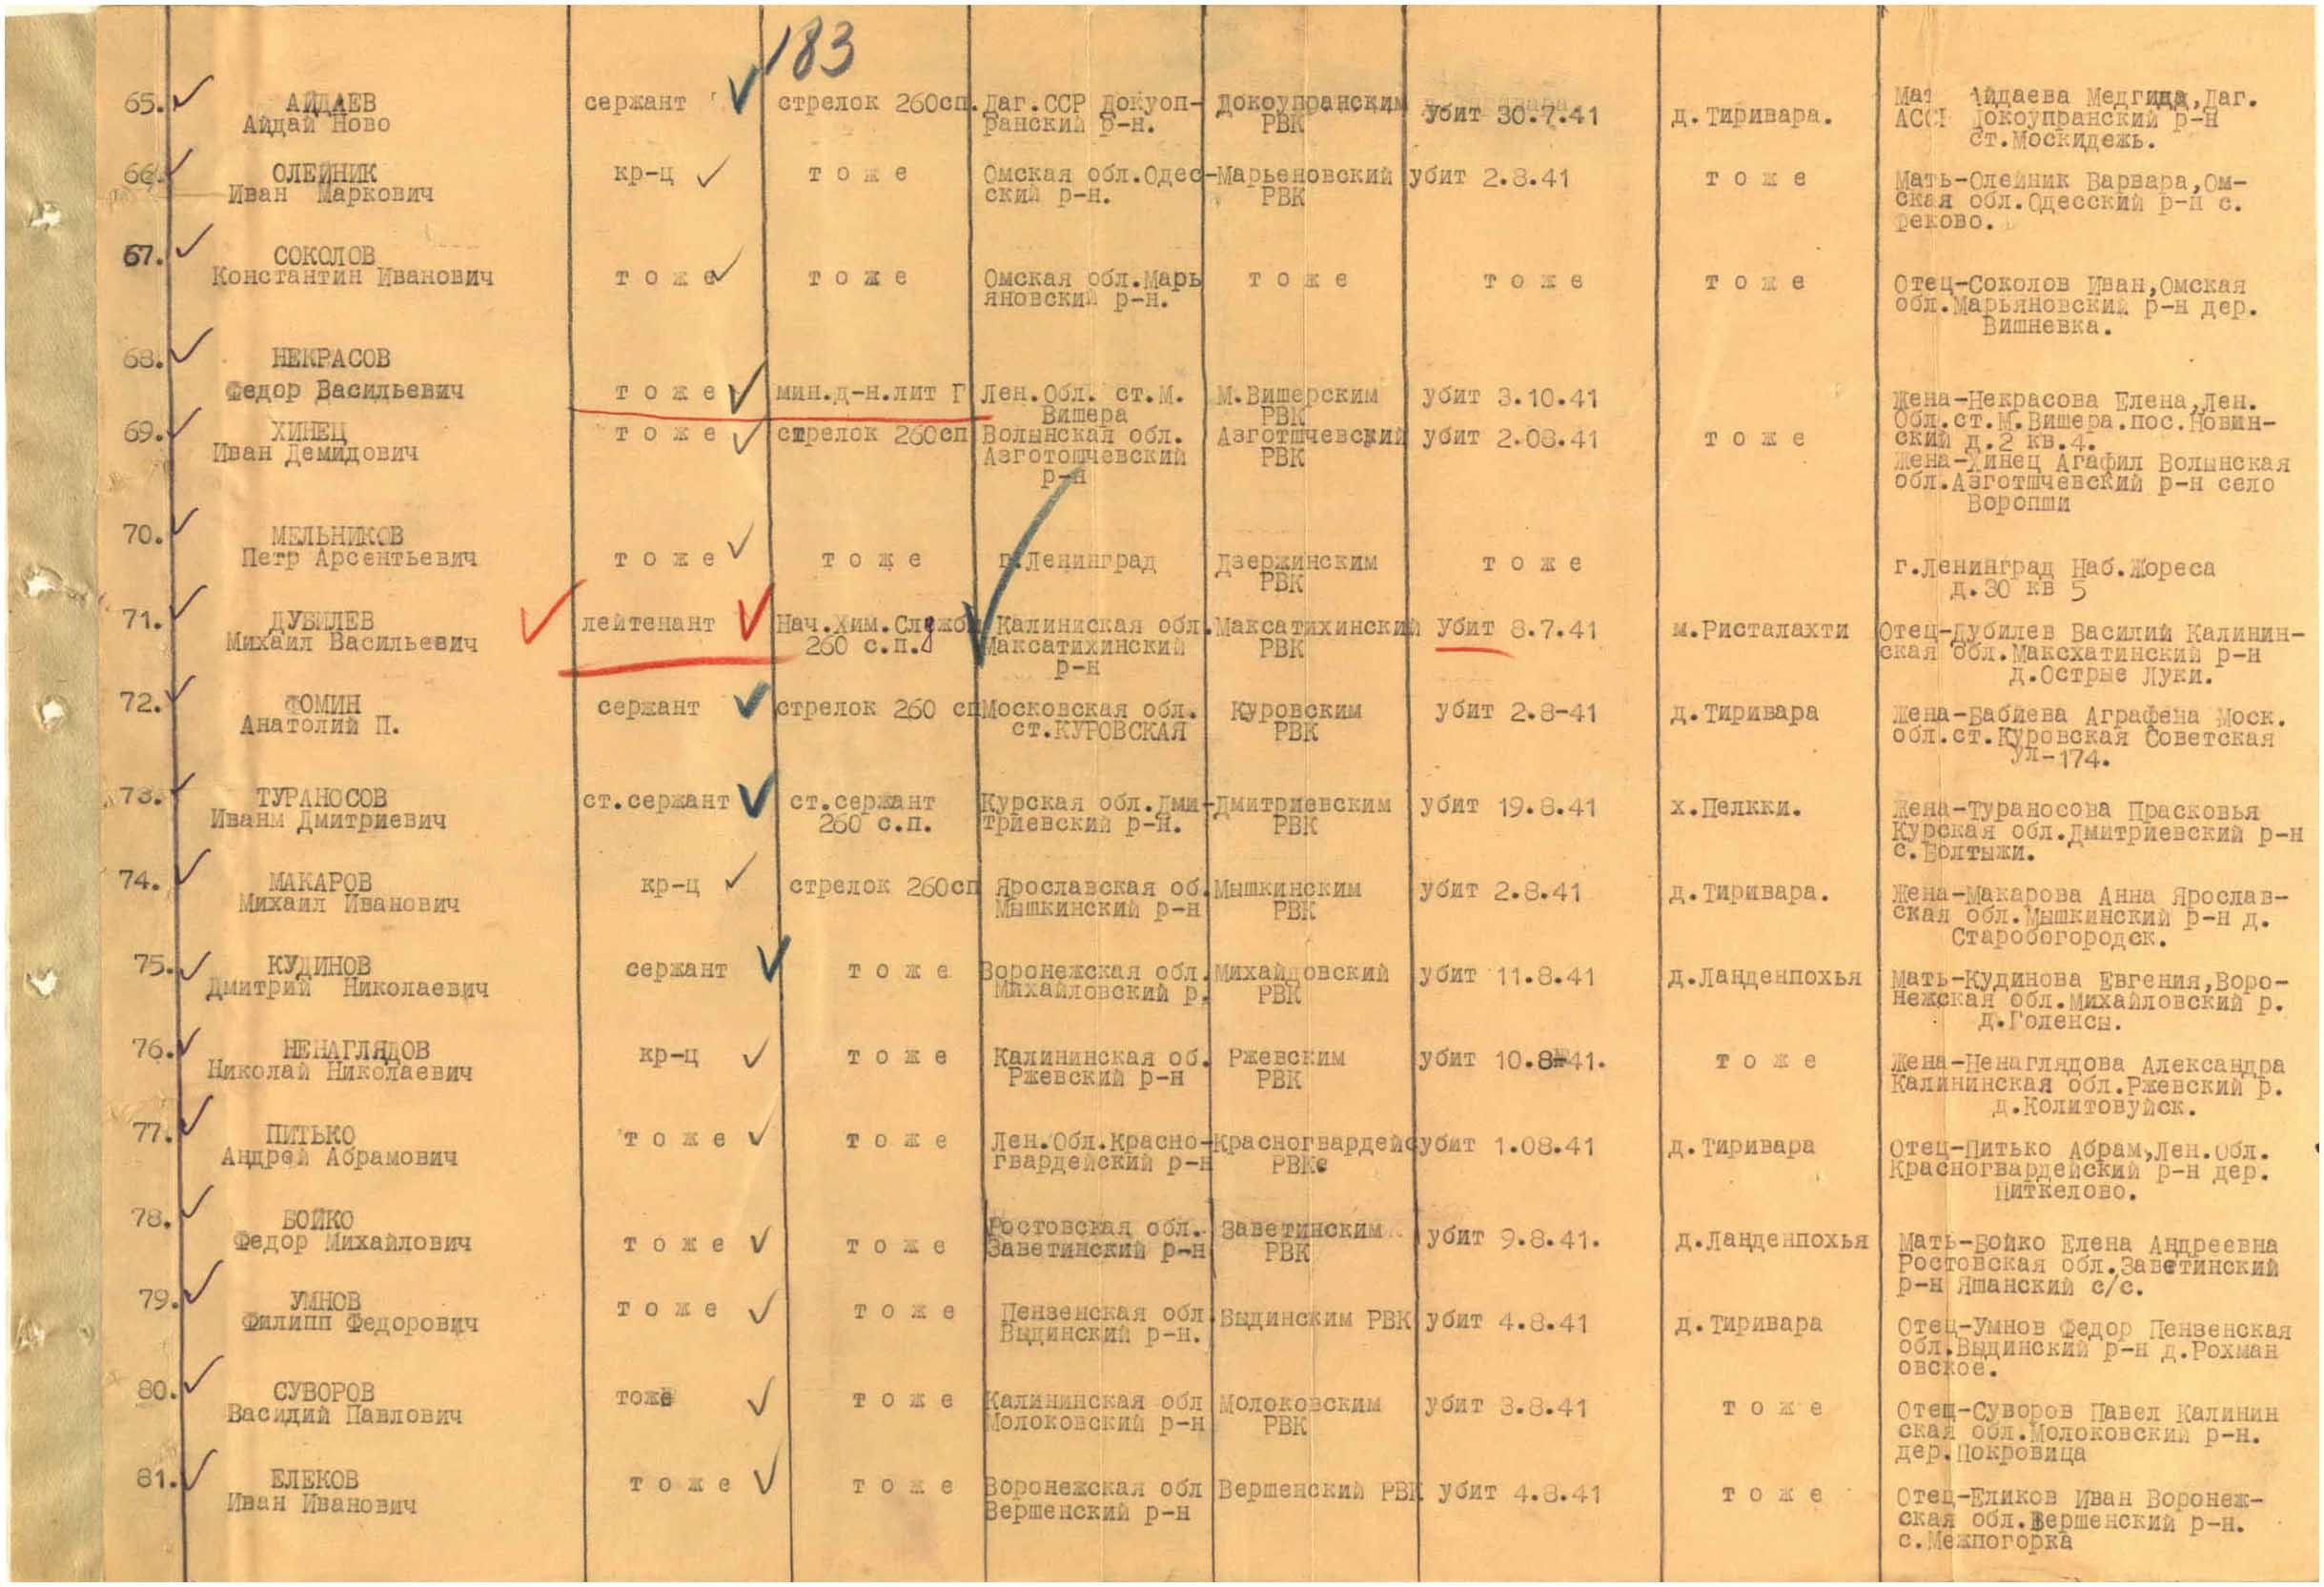 183
65. АЙДАЕВ
Айдай Ново
сержант
стрелок 260сп.
Даг.ССР Докуоп-
ранский р-н.
Докоупранским
РВК
убит 30.7.41
д.Тиривара.
Айдаева Медгида, Даг.
Докоупранский р-н
ст.Москидежь.
66. ОЛЕЙНИК
Иван Маркович
кр-ц
т о ж е
Омская обл.Одес-
ский р-н.
Марьеновский
РВК
убит 2.8.41
т о ж е
Мать-Олейник Варвара,Ом-
ская обл.Одесский р-н с.
реково.
67. СОКОЛОВ
Константин Иванович
т о ж е
т о ж е
Омская обл.Марь
яновский р-н.
т о ж е
т о ж е
т о ж е
Отец-Соколов Иван,Омская
обл.Марьяновский р-н дер.
Вишневка.
68. НЕКРАСОВ
Федор Васильевич
т о ж е
мин.д-н.лит Г
Лен.Обл. ст.М.
Вишера
М.Вишерским
РВК
убит 3.10.41
Жена-Некрасова Елена,Лен.
Обл.ст.М.Вишера.пос.Новин-
ский д.2 кв.4.
69. ХИНЕЦ
Иван Демидович
т о ж е
стрелок 260сп
Волынская обл.
Азготошчевский
р-н
Азготшчевский
РВК
убит 2.08.41
т о ж е
Жена-Хинец Агафил Волынская
обл.Азготшчевский р-н село
Воропши
70. МЕЛЬНИКОВ
Петр Арсентьевич
т о ж е
т о ж е
г.Ленинград
Дзержинским
РВК
т о ж е
г.Ленинград Наб.Жореса
д.30 кв 5
71. ДУБИЛЕВ
Михаил Васильевич
лейтенант
Нач.Хим.Служб
260 с.п.
Калининская обл.
Максатихинский
р-н
Максатихинский
РВК
убит 8.7.41
м.Ристалахти
Отец-Дубилев Василий Калинин-
ская обл.Максхатинский р-н
д.Острые Луки.
72. ФОМИН
Анатолий П.
сержант
стрелок 260 сп
Московская обл.
ст.КУРОВСКАЯ
Куровским
РВК
убит 2.8-41
д.Тиривара
Жена-Бабиева Аграфена Моск.
обл.ст.Куровская Советская
ул-174.
73. ТУРАНОСОВ
Иванм Дмитриевич
ст.сержант
ст.сержант
260 с.п.
Курская обл.Дми-
триевский р-н.
Дмитриевским
РВК
убит 19.8.41
х.Пелкки.
Жена-Тураносова Прасковья
Курская обл.Дмитриевский р-н
с.Болтыжи.
74. МАКАРОВ
Михаил Иванович
кр-ц
стрелок 260сп
Ярославская об.
Мышкинский р-н
Мышкинским
РВК
убит 2.8.41
д.Тиривара.
Жена-Макарова Анна Ярослав-
ская обл.Мышкинский р-н д.
Старобогородск.
75. КУДИНОВ
Дмитрий Николаевич
сержант
т о ж е
Воронежская обл.
Михайловский р.
Михайловский
РВК
убит 11.8.41
д.Ланденпохья
Мать-Кудинова Евгения,Воро-
нежская обл.Михайловский р.
д.Голенсы.
76. НЕНАГЛЯДОВ
Николай Николаевич
кр-ц
т о ж е
Калининская об.
Ржевский р-н
Ржевским
РВК
убит 10.8-41.
т о ж е
Жена-Ненаглядова Александра
Калининская обл.Ржевский р.
д.Колитовуйск.
77. ПИТЬКО
Андрей Абрамович
т о ж е
т о ж е
Лен.Обл.Красно-
гвардейский р-н
Красногвардейс
РВКе
убит 1.08.41
д.Тиривара
Отец-Питько Абрам,Лен.Обл.
Красногвардейский р-н дер.
Питкелово.
78. БОЙКО
Федор Михайлович
т о ж е
т о ж е
Ростовская обл.
Заветинский р-н
Заветинским
РВК
убит 9.8.41.
д.Ланденпохья
Мать-Бойко Елена Андреевна
Ростовская обл.Заветинский
р-н Яшанский с/с.
79. УМНОВ
Филипп Федорович
т о ж е
т о ж е
Пензенская обл
Выдинский р-н.
Выдинским РВК
убит 4.8.41
д.Тиривара
Отец-Умнов Федор Пензенская
обл.Выдинский р-н д.Рохман
овское.
80. СУВОРОВ
Василий Павлович
тоже
т о ж е
Калининская обл
Молоковский р-н
Молоковским
РВК
убит 3.8.41
т о ж е
Отец-Суворов Павел Калинин
ская обл.Молоковский р-н.
дер.Покровица
81. ЕЛЕКОВ
Иван Иванович
т о ж е
т о ж е
Воронежская обл
Вершенский р-н
Вершенский РВК
убит 4.8.41
т о ж е
Отец-Еликов Иван Воронеж-
ская обл.Вершенский р-н.
с.Межпогорка